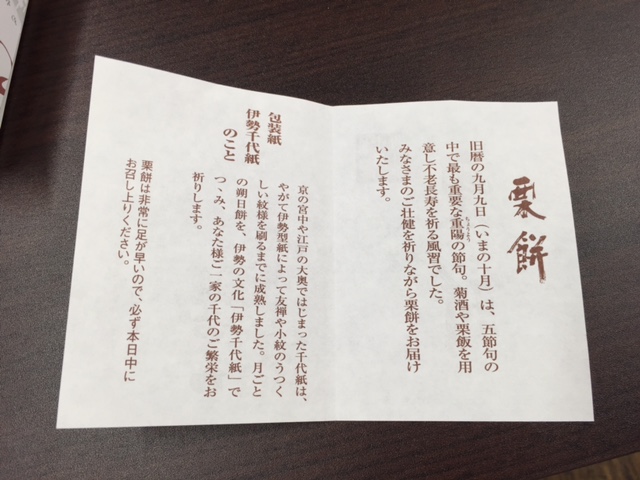 栗餅
旧暦の九月九日（いまの十月）は、五節句の
中で最も重要な重陽の節句。菊酒や栗飯を用
ちょうよう
意し不老長寿を祈る風習でした。
みなさまのご壮健を祈りながら栗餅をお届け
いたします。
包装紙
伊勢千代紙
のこと
京の宮中や江戸の大奥ではじまった千代紙は、
やがて伊勢型紙によって友禅や小紋のうつく
しい紋様を刷るまでに成熟しました。月ごと
の朔日餅を、伊勢の文化「伊勢千代紙」で
つゝみ、あなた様ご一家の千代のご繁栄をお
祈りします。
栗餅は非常に足が早いので、必ず本日中に
お召し上りください。